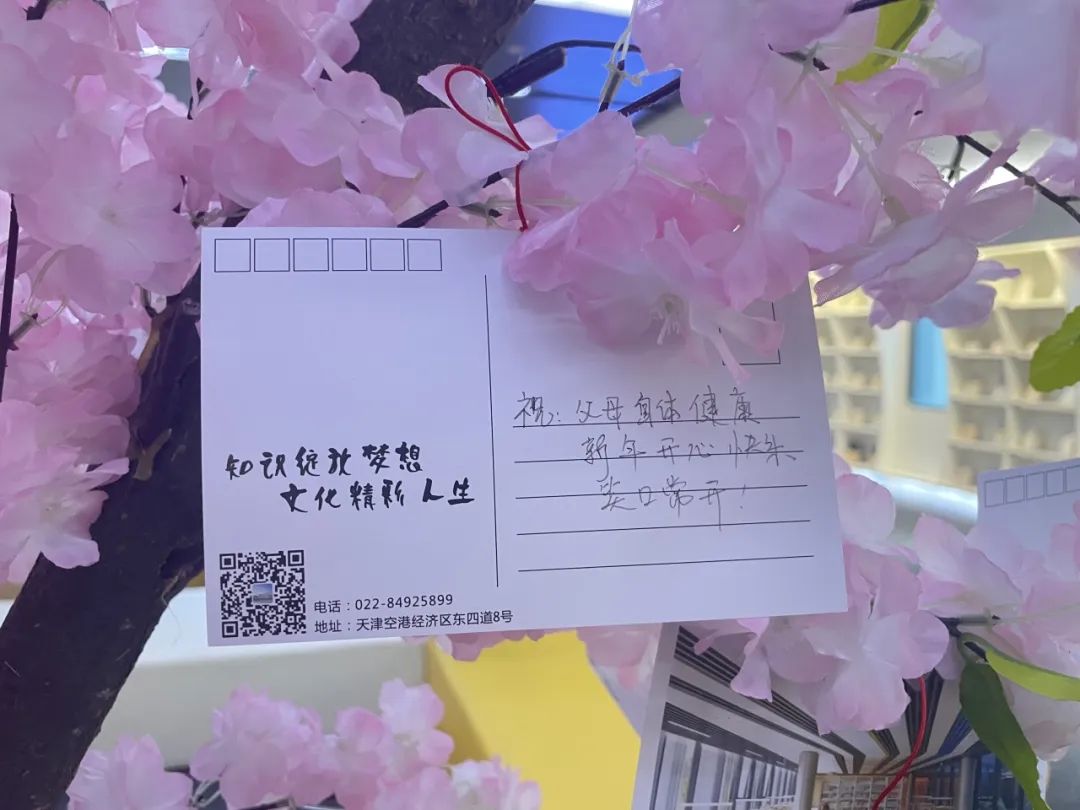 知识绽放梦想
文化精彩人生
电话：022-84925899
地址：天津空港经济区东四道8号
祝：父母身体健康
新年开心快乐
笑口常开！